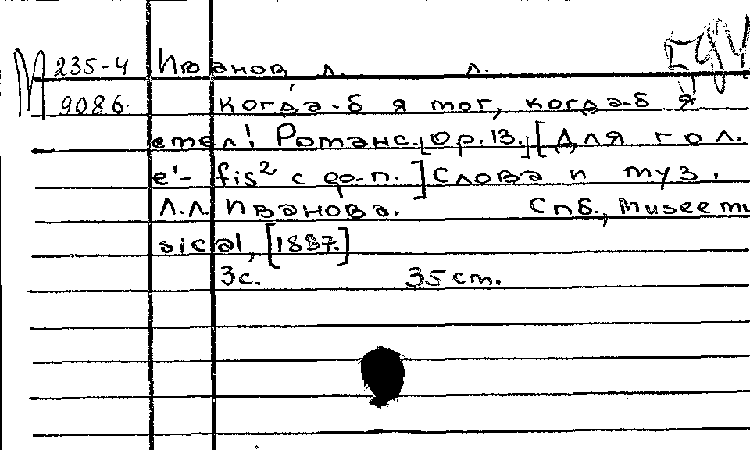 М 235-4 Иванов, Л. Л.
9086. Когда-б я мог, когда-б я
смел! Романс. [Op. 13.] [Для гол.
e'- fis² с ф-п.] Слова и муз.
Л.Л. Иванова. Спб., Musée mu
sical, [1887]
3с. 35 cm.